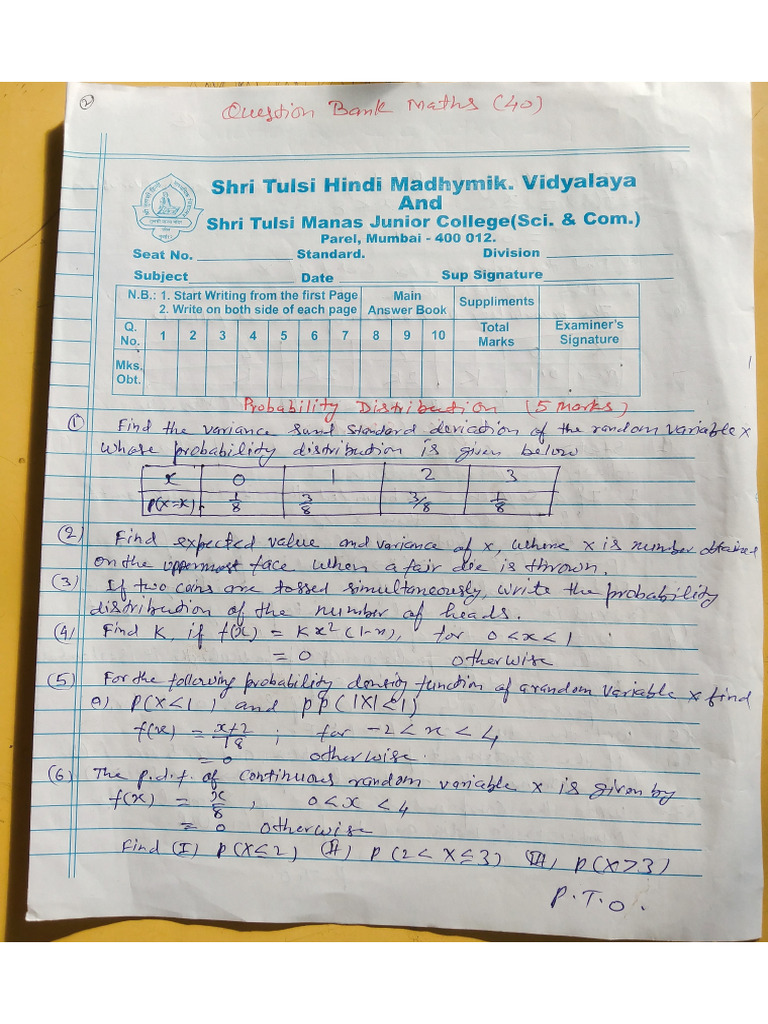 2
Question Bank Maths (40)
Shri Tulsi Hindi Madhymik. Vidyalaya
And
Shri Tulsi Manas Junior College(Sci. & Com.)
Parel, Mumbai - 400 012.
Seat No. Standard. Division
Subject Date Sup Signature
N.B.: 1. Start Writing from the first Page Main Suppliments
2. Write on both side of each page Answer Book
Q. No. 1 2 3 4 5 6 7 8 9 10 Total Marks Examiner's Signature
Mks. Obt.
Probability Distribution (5 marks)
(1) Find the variance and standard deviation of the random variable x
whose probability distribution is given below
x 0 1 2 3
P(X=x) 1/8 3/8 3/8 1/8
(2) Find expected value and variance of x, where x is number obtained
on the uppermost face when a fair die is thrown.
(3) If two coins are tossed simultaneously, write the probability
distribution of the number of heads.
(4) Find K, if f(x) = Kx²(1-x), for 0<x<1
= 0 otherwise
(5) For the following probability density function of a random variable x find
a) P(X<1) and P P(|X|<1)
f(x) = x+2/18 ; for -2<x<4
= 0 otherwise.
(6) The p.d.f. of continuous random variable x is given by
f(x) = x/8 , 0<x<4
= 0 otherwise
Find (I) P(X≤2) (II) P(2<X≤3) (III) P(X>3)
P.T.O.